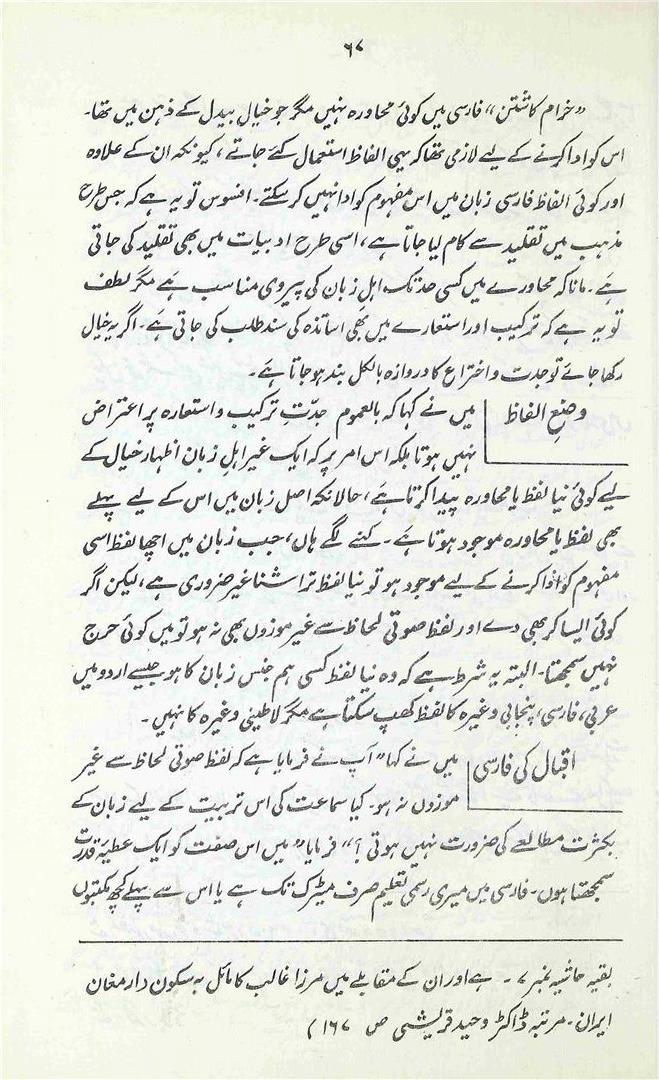 ۶۷
”خرام کاشتن“ فارسی میں کوئی محاورہ نہیں مگر جو خیال بیدل کے ذہن میں تھا۔
اس کو ادا کرنے کے لیے لازمی تھا کہ یہی الفاظ استعمال کئے جاتے، کیونکہ ان کے علاوہ
اور کوئی الفاظ فارسی زبان میں اس مفہوم کو ادا نہیں کر سکتے۔ افسوس تو یہ ہے کہ جس طرح
مذہب میں تقلید سے کام لیا جاتا ہے، اسی طرح ادبیات میں بھی تقلید کی جاتی
ہے۔ مانا کہ محاورے میں کسی حد تک اہلِ زبان کی پیروی مناسب ہے مگر لطف
تو یہ ہے کہ ترکیب اور استعارے میں بھی اساتذہ کی سند طلب کی جاتی ہے۔ اگر یہ خیال
رکھا جائے تو جدت و اختراع کا دروازہ بالکل بند ہو جاتا ہے۔
وضعِ الفاظ میں نے کہا کہ بالعموم جدّتِ ترکیب و استعارہ پر اعتراض
نہیں ہوتا بلکہ اس امر پر کہ ایک غیر اہلِ زبان اظہار خیال کے
لیے کوئی نیا لفظ یا محاورہ پیدا کرتا ہے، حالانکہ اصل زبان میں اس کے لیے پہلے
بھی لفظ یا محاورہ موجود ہوتا ہے۔ کہنے لگے ہاں، جب زبان میں اچھا لفظ اسی
مفہوم کو ادا کرنے کے لیے موجود ہو تو نیا لفظ تراشنا غیر ضروری ہے، لیکن اگر
کوئی ایسا کر بھی دے اور لفظ صوتی لحاظ سے غیر موزوں بھی نہ ہو تو میں کوئی حرج
نہیں سمجھتا۔ البتہ یہ شرط ہے کہ وہ نیا لفظ کسی ہم جنس زبان کا ہو جیسے اردو میں
عربی، فارسی، پنجابی وغیرہ کا لفظ کھپ سکتا ہے مگر لاطینی وغیرہ کا نہیں۔
اقبال کی فارسی میں نے کہا ”آپ نے فرمایا ہے کہ لفظ صوتی لحاظ سے غیر
موزوں نہ ہو۔ کیا سماعت کی اس تربیت کے لیے زبان کے
بکثرت مطالعے کی ضرورت نہیں ہوتی؟“ فرمایا ”میں اس صفت کو ایک عطیۂ قدرت
سمجھتا ہوں۔ فارسی میں میری رسمی تعلیم صرف میٹرک تک ہے یا اس سے پہلے کچھ مکتبوں
بقیہ حاشیہ نمبر ۷۔ ہے اور ان کے مقابلے میں مرزا غالب کا مائل بہ سکون دارمغان
ایران۔ مرتبہ ڈاکٹر وحید قریشی ص ۱۶۷)